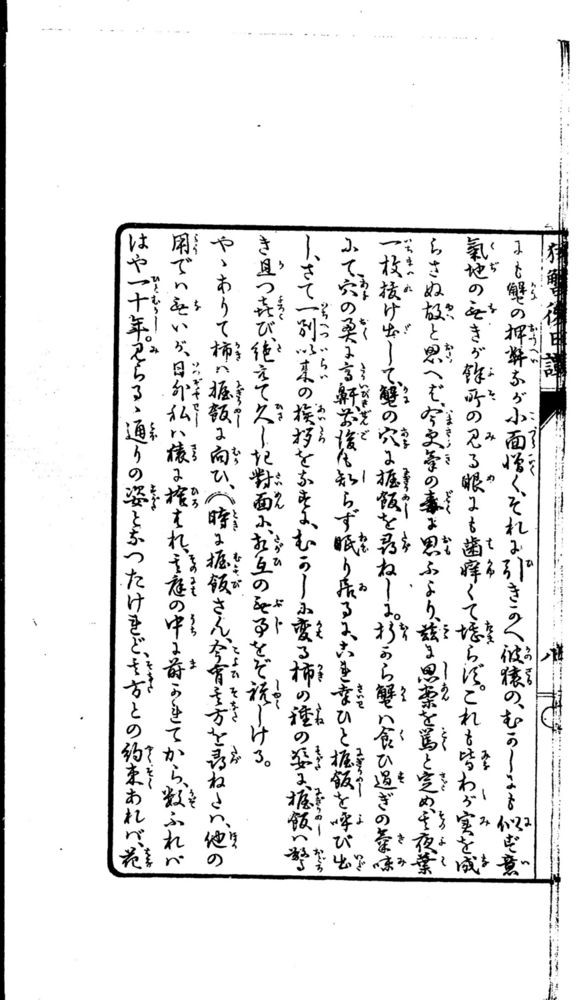 猿蟹後日譚
八
にも蟹の押柄なが小面憎く、それに引きかへ彼猿の、むかしにも似ず意
氣地の無きが餘所の見る眼にも歯痒くて堪らず。これも皆わが実を成
らさぬ故と思へば、今更氣の毒に思ふより、茲に思案を篤と定め其夜葉
一枚抜け出して、蟹の穴に握飯を尋ねしに。折から蟹は食ひ過ぎの氣味
にて、穴の奥に高鼾前後も知らず眠り居るに、これ幸ひと握飯を呼び出
し、さて一別以来の挨拶をなすに、むかしに変る柿の種の姿に握飯は驚
き且つ喜び、絶えて久しき對面に、お互の無事をぞ祝しける。
やゝありて柿は握飯に向ひ、（時に握飯さん、今宵其方を尋ねたは、他の
用では無いが、日外私は猿に捨られ、其庭の中に蒔かれてから、数ふれば
はや一十年。見らるゝ通りの姿となつたけれど、其方との約束あれば、花